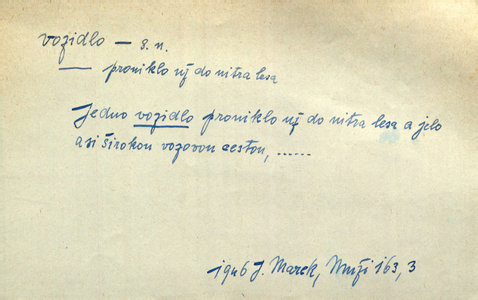 vozidlo – s. n.
— proniklo už do nitra lesa
Jedno vozidlo proniklo už do nitra lesa a jelo
asi širokou vozovou cestou, ......
1946 J. Marek, Muži 163, 3